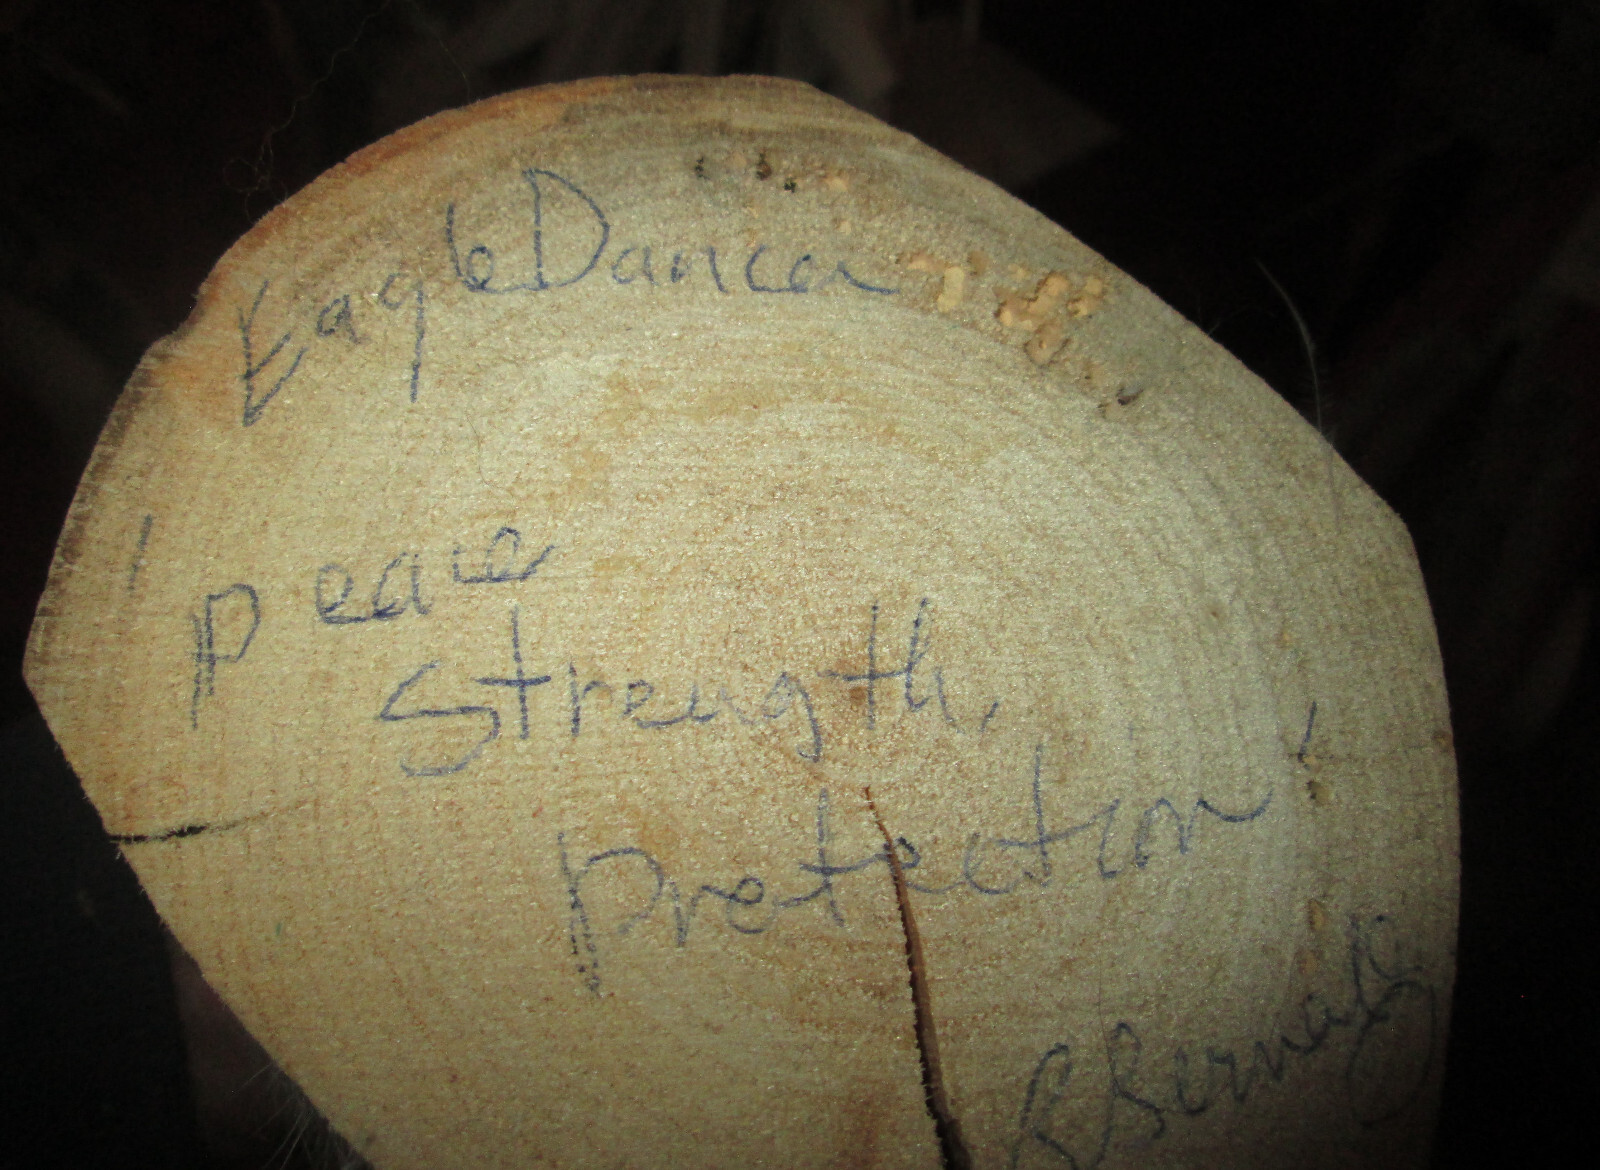 Eagle Dancer
Peace
Strength,
Protection